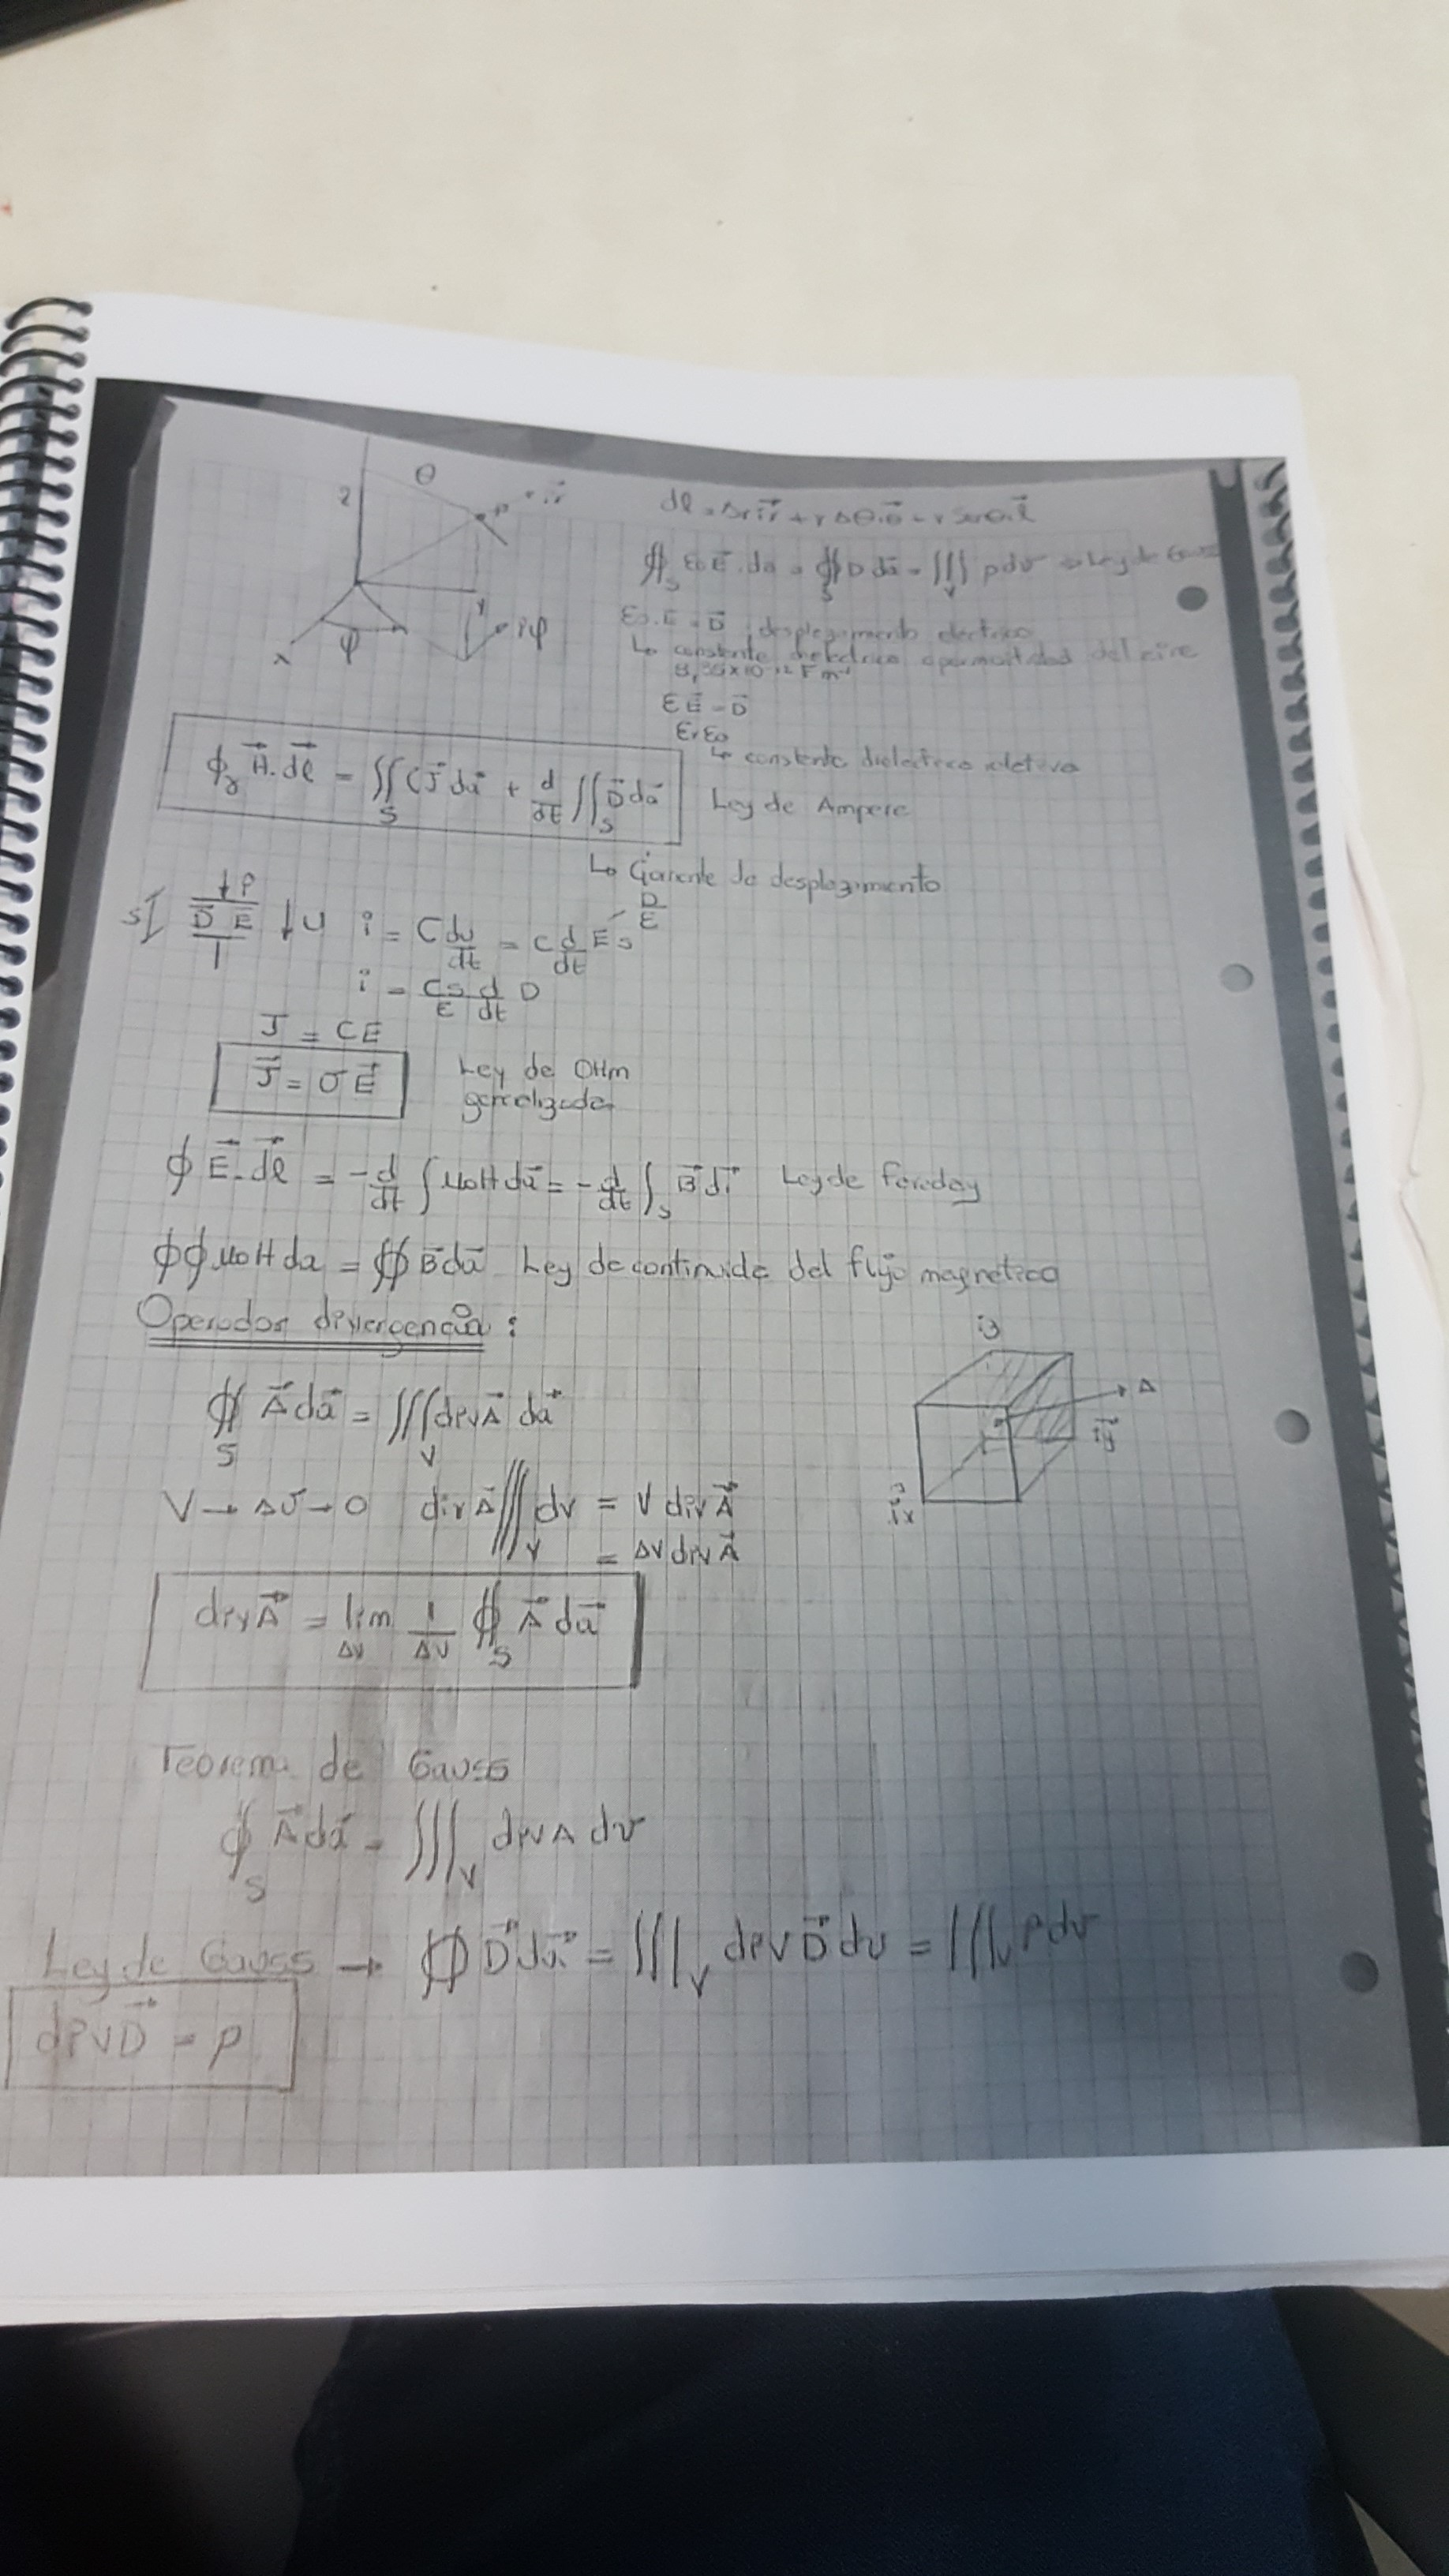 z θ P i⃗r
x φ y i⃗φ
dl = Δr i⃗r + rΔθ i⃗θ + r senθ
∯s ε₀E⃗ . da = ∯s D da⃗ = ∭v ρ dv ⇒ Ley de Gauss
ε₀.E⃗ = D⃗ desplazamiento eléctrico
↳ constante dieléctrica o permitividad del aire
8,85x10⁻¹² F m⁻¹
εE⃗ = D⃗
εrε₀
↳ constante dieléctrica relativa
∮γ H⃗.dl⃗ = ∬s (J⃗ da⃗ + d/dt ∬s D⃗ da⃗ Ley de Ampere
↳ Corriente de desplazamiento
s D⃗ E⃗ ↓U i = C du/dt = C d/dt E s D/ε
i = Cs/ε d/dt D
J = CE
J⃗ = σE⃗ Ley de OHm
generalizada
∮ E⃗.dl⃗ = -d/dt ∫ μ₀H da⃗ = -d/dt ∫s B⃗ d⃗ Ley de Faraday
∮∮ μ₀H da = ∯ B⃗ da⃗ Ley de continuida del flujo magnetico
Operador divergencia :
∯s A⃗ da⃗ = ∭v div A⃗ da⃗
iz Δ i⃗y i⃗x
V → Δv → 0 div A⃗ ∭v dv = V div A⃗
= ΔV div A⃗
div A⃗ = lim Δv 1/Δv ∯s A⃗ da⃗
Teorema de Gauss
∮s A⃗ da⃗ = ∭v div A dv
Ley de Gauss → ∯ D⃗ da⃗ = ∭v div D⃗ dv = ∭v ρ dv
div D⃗ = ρ